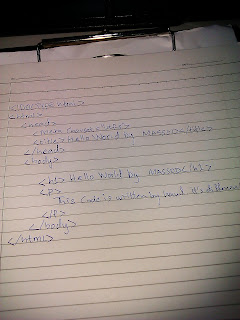 <!DOCTYPE html>
<html>
<head>
<title>Hello World by MASSODE</title>
</head>
<body>
<h1>Hello World by MASSODE</h1>
<p>
This Code is written by hand. It's different
</p>
</body>
</html>